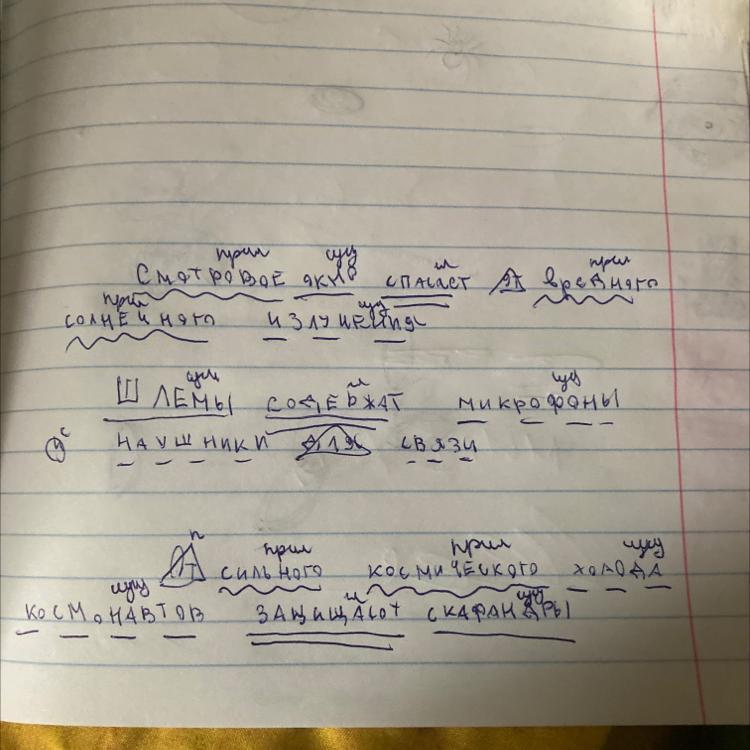 прил сущ гл прил
Смотровое окно спасает от вредного
прил сущ
солнечного излучения
сущ гл сущ
Шлемы содержат микрофоны
с
и наушники для связи
п прил прил сущ
От сильного космического холода
сущ гл сущ
космонавтов защищают скафандры